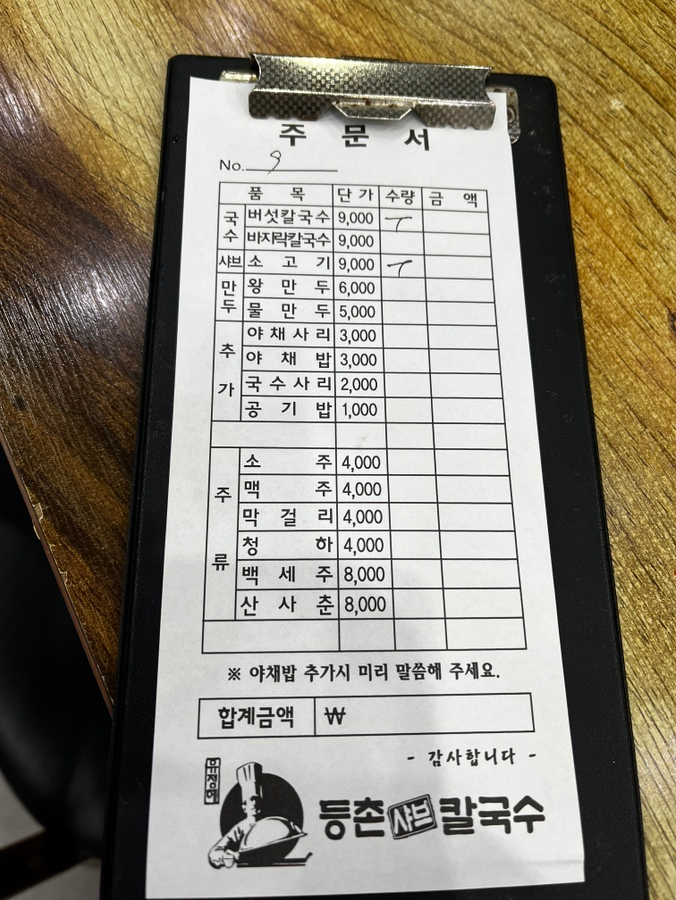 주 문 서
No. 9
품 목 단 가 수량 금 액
국수 버섯칼국수 9,000 ㅜ
바지락칼국수 9,000
샤브 소 고 기 9,000 ㅜ
만두 왕 만 두 6,000
물 만 두 5,000
추가 야 채 사 리 3,000
야 채 밥 3,000
국 수 사 리 2,000
공 기 밥 1,000
주류 소 주 4,000
맥 주 4,000
막 걸 리 4,000
청 하 4,000
백 세 주 8,000
산 사 춘 8,000
※ 야채밥 추가시 미리 말씀해 주세요.
합계금액 ₩
- 감사합니다 -
등촌 샤브 칼국수